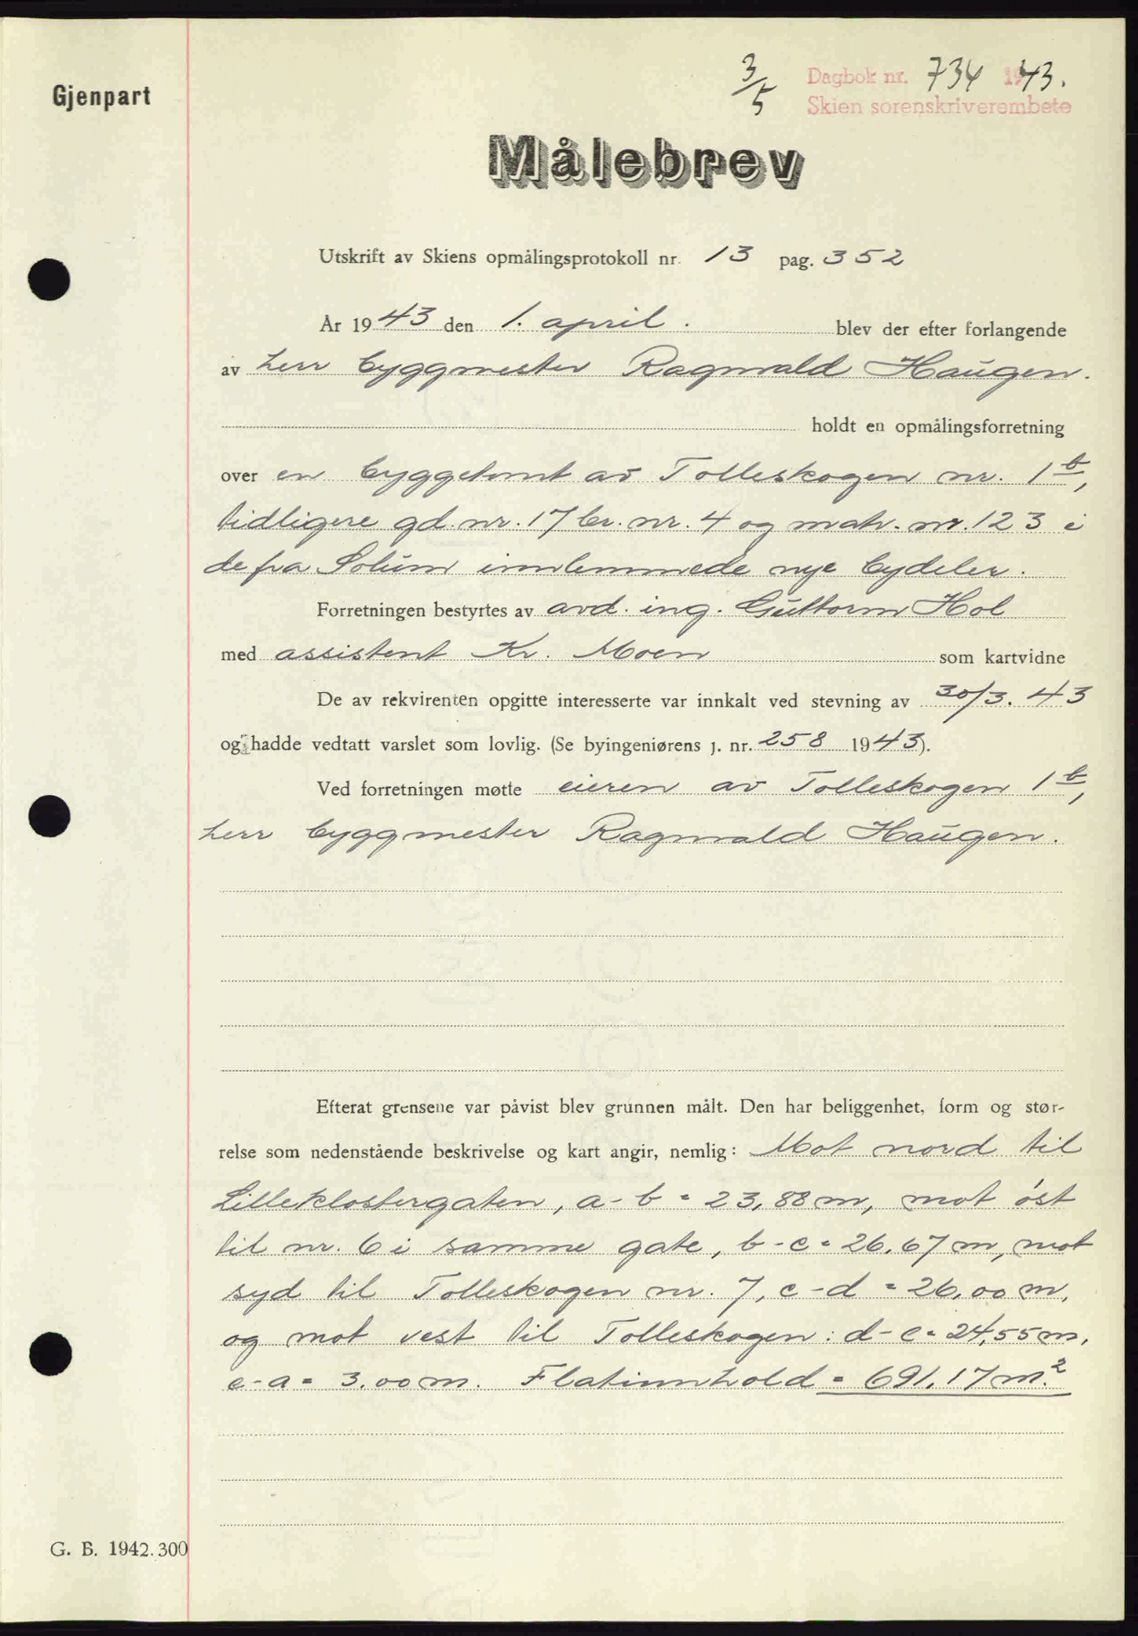 Gjenpart
3/5 Dagbok nr. 734 1943.
Skien sorenskriverembete
Målebrev
Utskrift av Skiens opmålingsprotokoll nr. 13 pag. 352
År 1943 den 1. april. blev der efter forlangende
av herr byggmester Ragnvald Haugen.
holdt en opmålingsforretning
over en byggetomt av Tolleskogen nr. 1b,
tidligere gd. nr. 17 br. nr. 4 og matr. nr. 123 i
de fra Solum innlemmede nye bydeler.
Forretningen bestyrtes av avd. ing. Guttorm Hol
med assistent Kr. Moen som kartvidne
De av rekvirenten opgitte interesserte var innkalt ved stevning av 30/3. 43
og hadde vedtatt varslet som lovlig. (Se byingeniørens j. nr. 258 1943).
Ved forretningen møtte eieren av Tolleskogen 1b,
herr byggmester Ragnvald Haugen.
Efterat grensene var påvist blev grunnen målt. Den har beliggenhet, form og stør-
relse som nedenstående beskrivelse og kart angir, nemlig: Mot nord til
Lilleklostergaten, a-b = 23,88 m, mot øst
til nr. 6 i samme gate, b-c = 26,67 m, mot
syd til Tolleskogen nr. 7, c-d = 26,00 m,
og mot vest til Tolleskogen: d-e = 24,55 m,
e-a = 3.00 m. Flatinnhold = 691,17 m.2
G. B. 1942.300